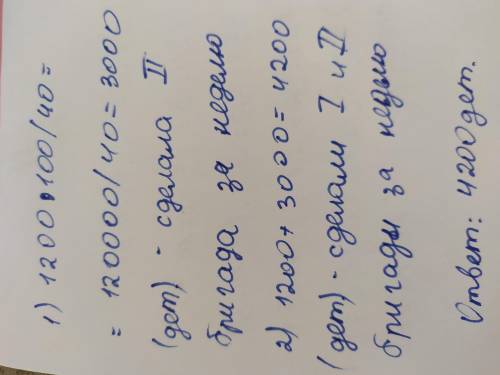 1) 1200•100/40=
= 120000/40=3000
(дет) - сделала II
бригада за неделю
2) 1200+3000=4200
(дет) - сделали I и II
бригады за неделю
Ответ: 4200 дет.